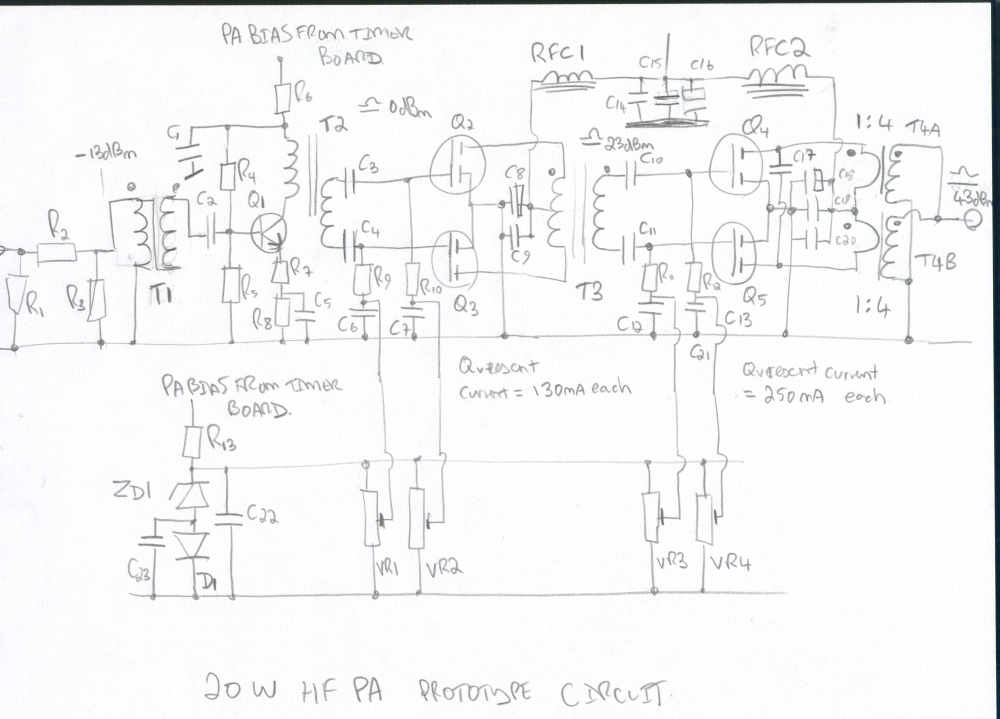 PA BIAS FROM TIMER
BOARD.
RFC1
C15
C16
RFC2
R6
≏ 0dBm
C14
C1
T2
Q2
≏ 23dBm
Q4
1:4
T4A
-13dBm
R4
C3
C8
C10
C17
C18
≏
43dBm
C2
Q1
C19
R2
C4
C11
C20
R7
R9
R10
C9
R11
R12
T4B
R1
R3
T1
R5
R8
C5
C6
C7
Q3
T3
C12
C13
Q5
1:4
C21
Quiescent
Current = 130mA each
Quiescent current
= 250mA each.
PA BIAS FROM TIMER
BOARD.
R13
ZD1
C22
C23
D1
VR1
VR2
VR3
VR4
20W HF PA PROTOTYPE CIRCUIT.